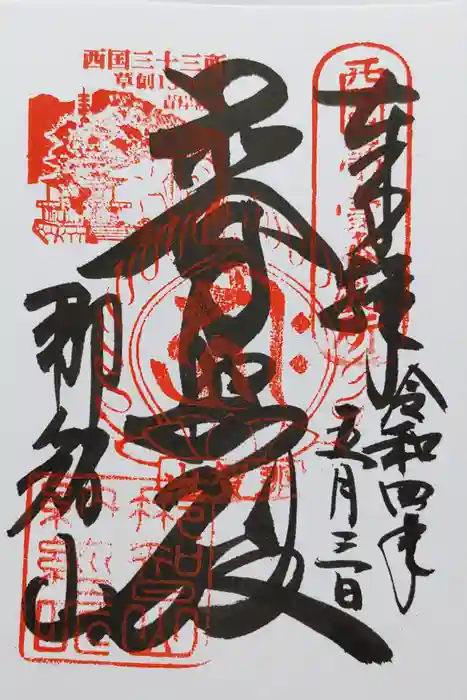 西国三十三所
草創13
青岸渡
奉拝
令和四年
五月三日
普照殿
那智山